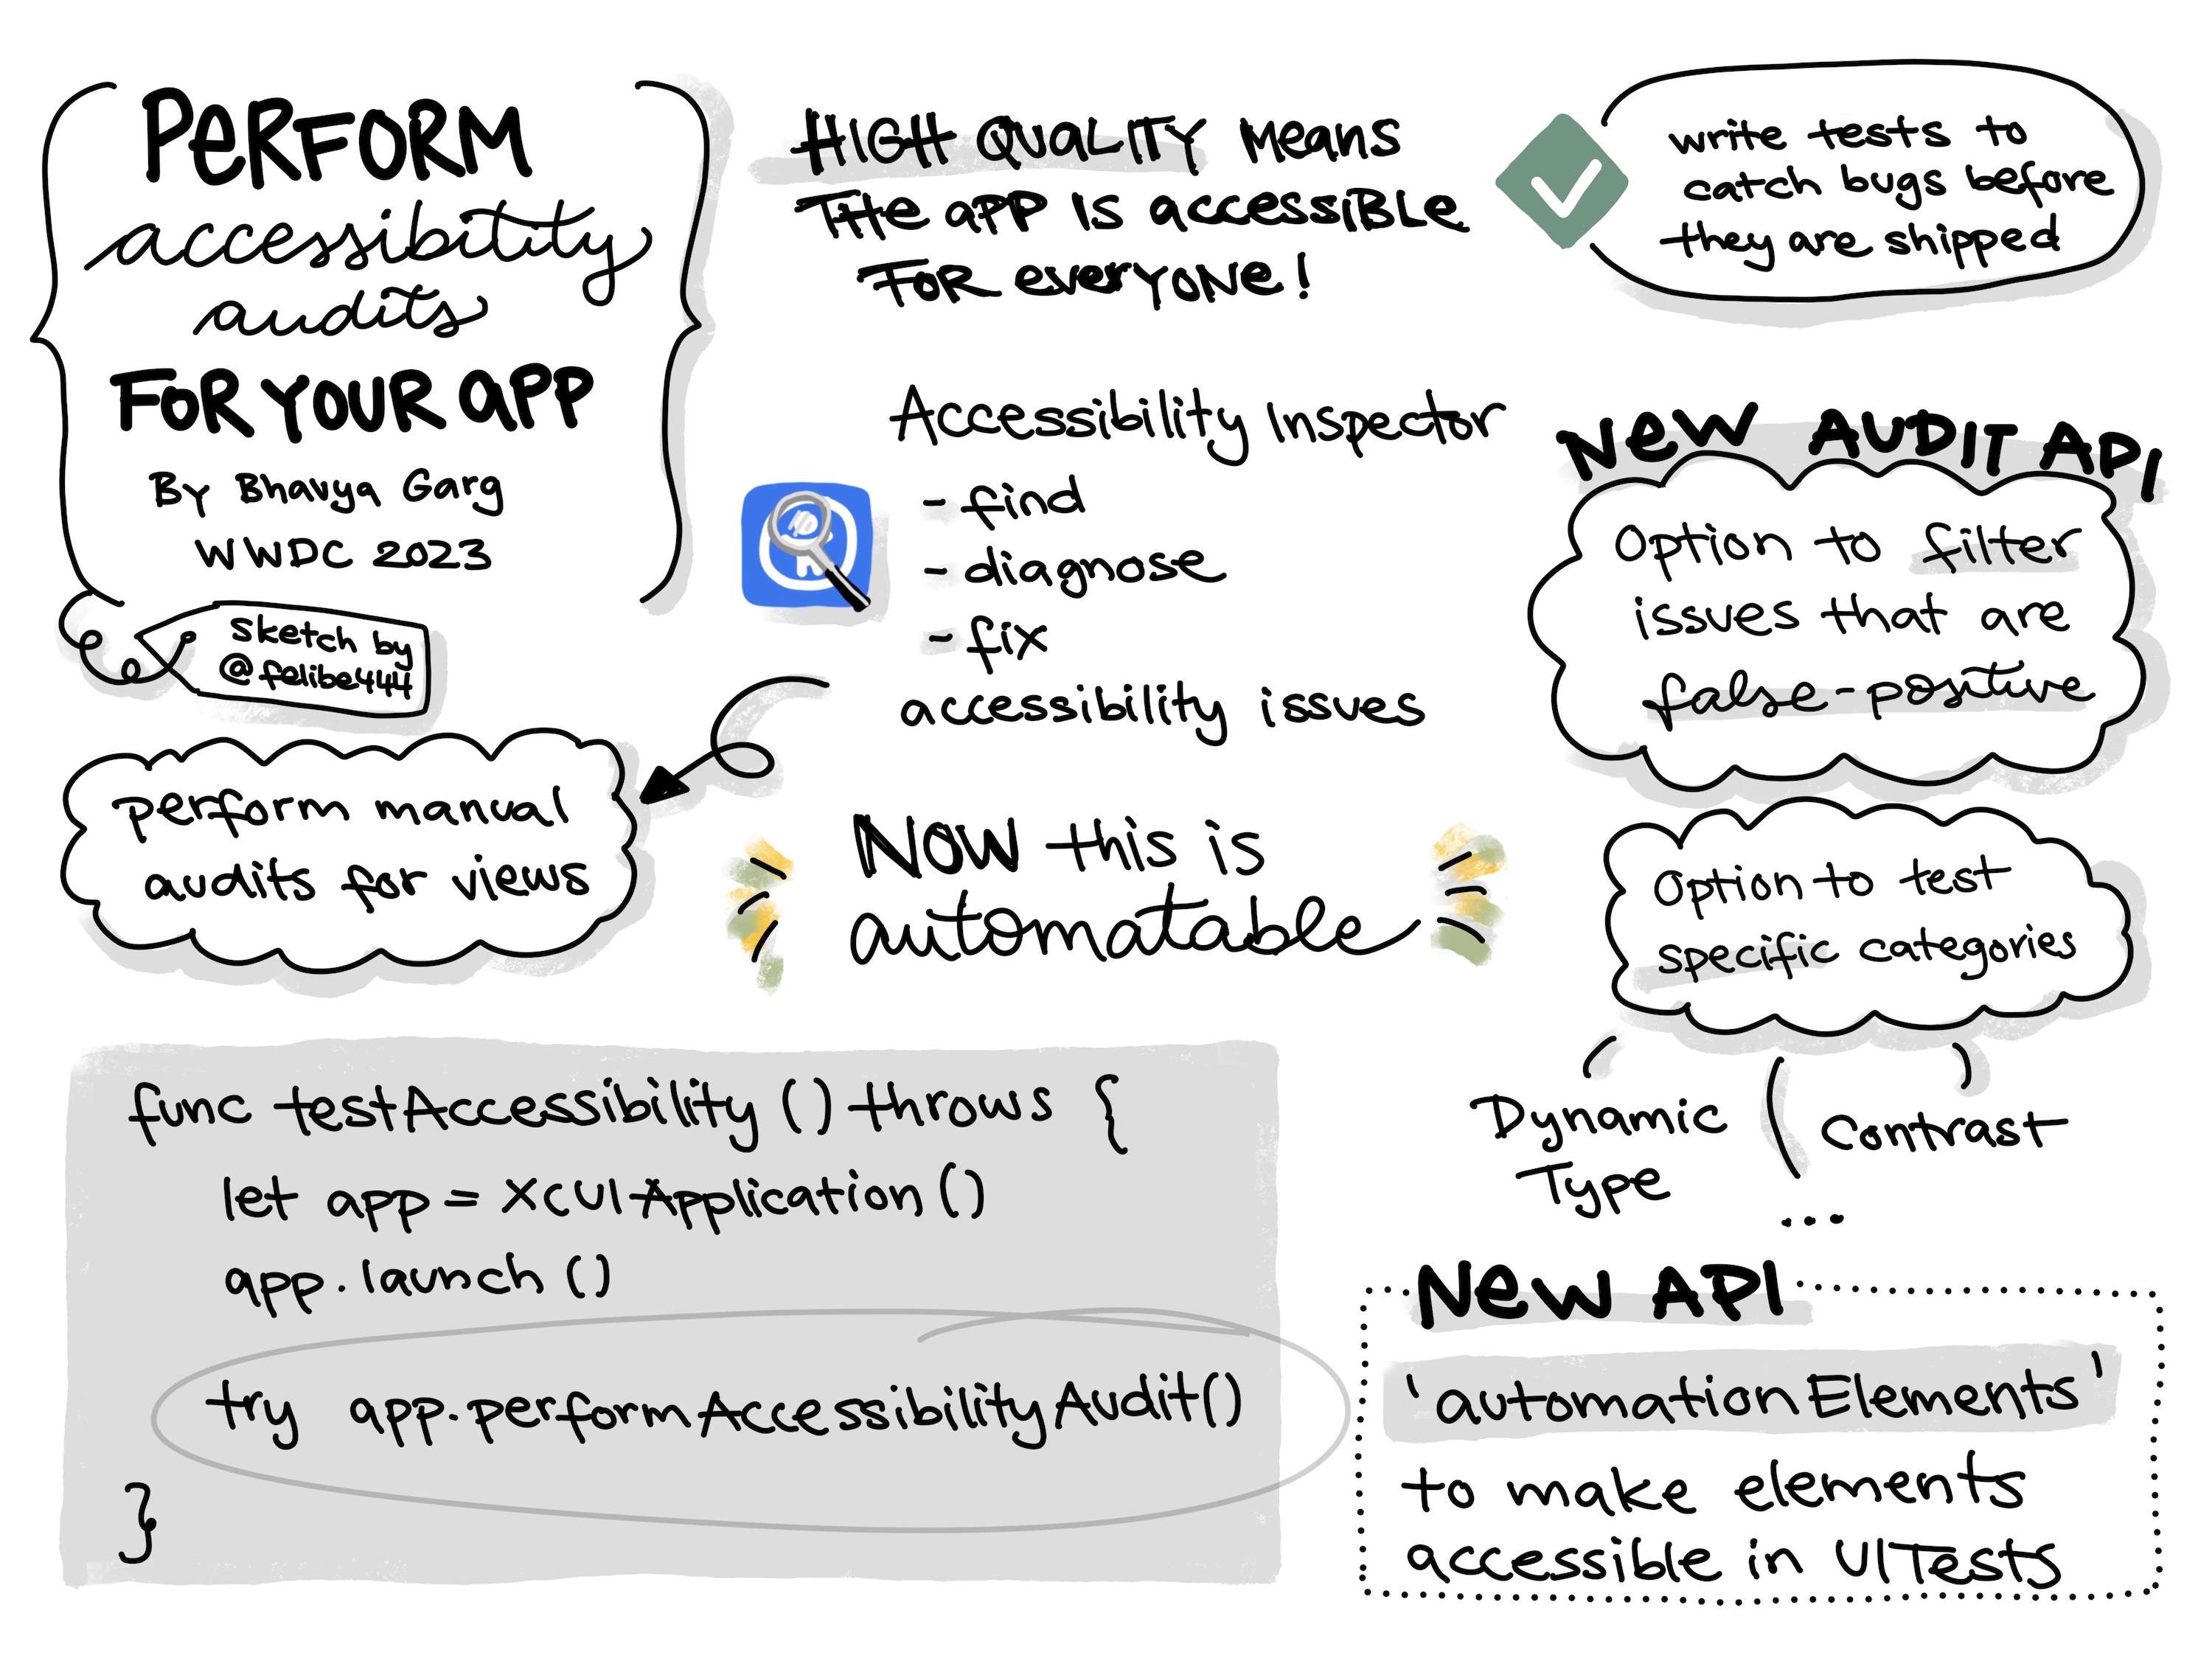 PERFORM
accessibility
audits
FOR YOUR APP
By Bhavya Garg
WWDC 2023
sketch by
@felibe444
HIGH QUALITY Means
THe APP IS accessiBLe
FOR everyone!
write tests to
catch bugs before
they are shipped
Accessibility Inspector
- find
- diagnose
- fix
accessibility issues
perform manual
audits for views
NOW this is
automatable
NeW AUDIT API
Option to filter
issues that are
false-positive
Option to test
specific categories
Dynamic
Type
Contrast
...
func testAccessibility () throws {
let app = XCUIApplication ()
app.launch ()
try app.performAccessibilityAudit()
}
New API
'automationElements'
to make elements
accessible in UITests